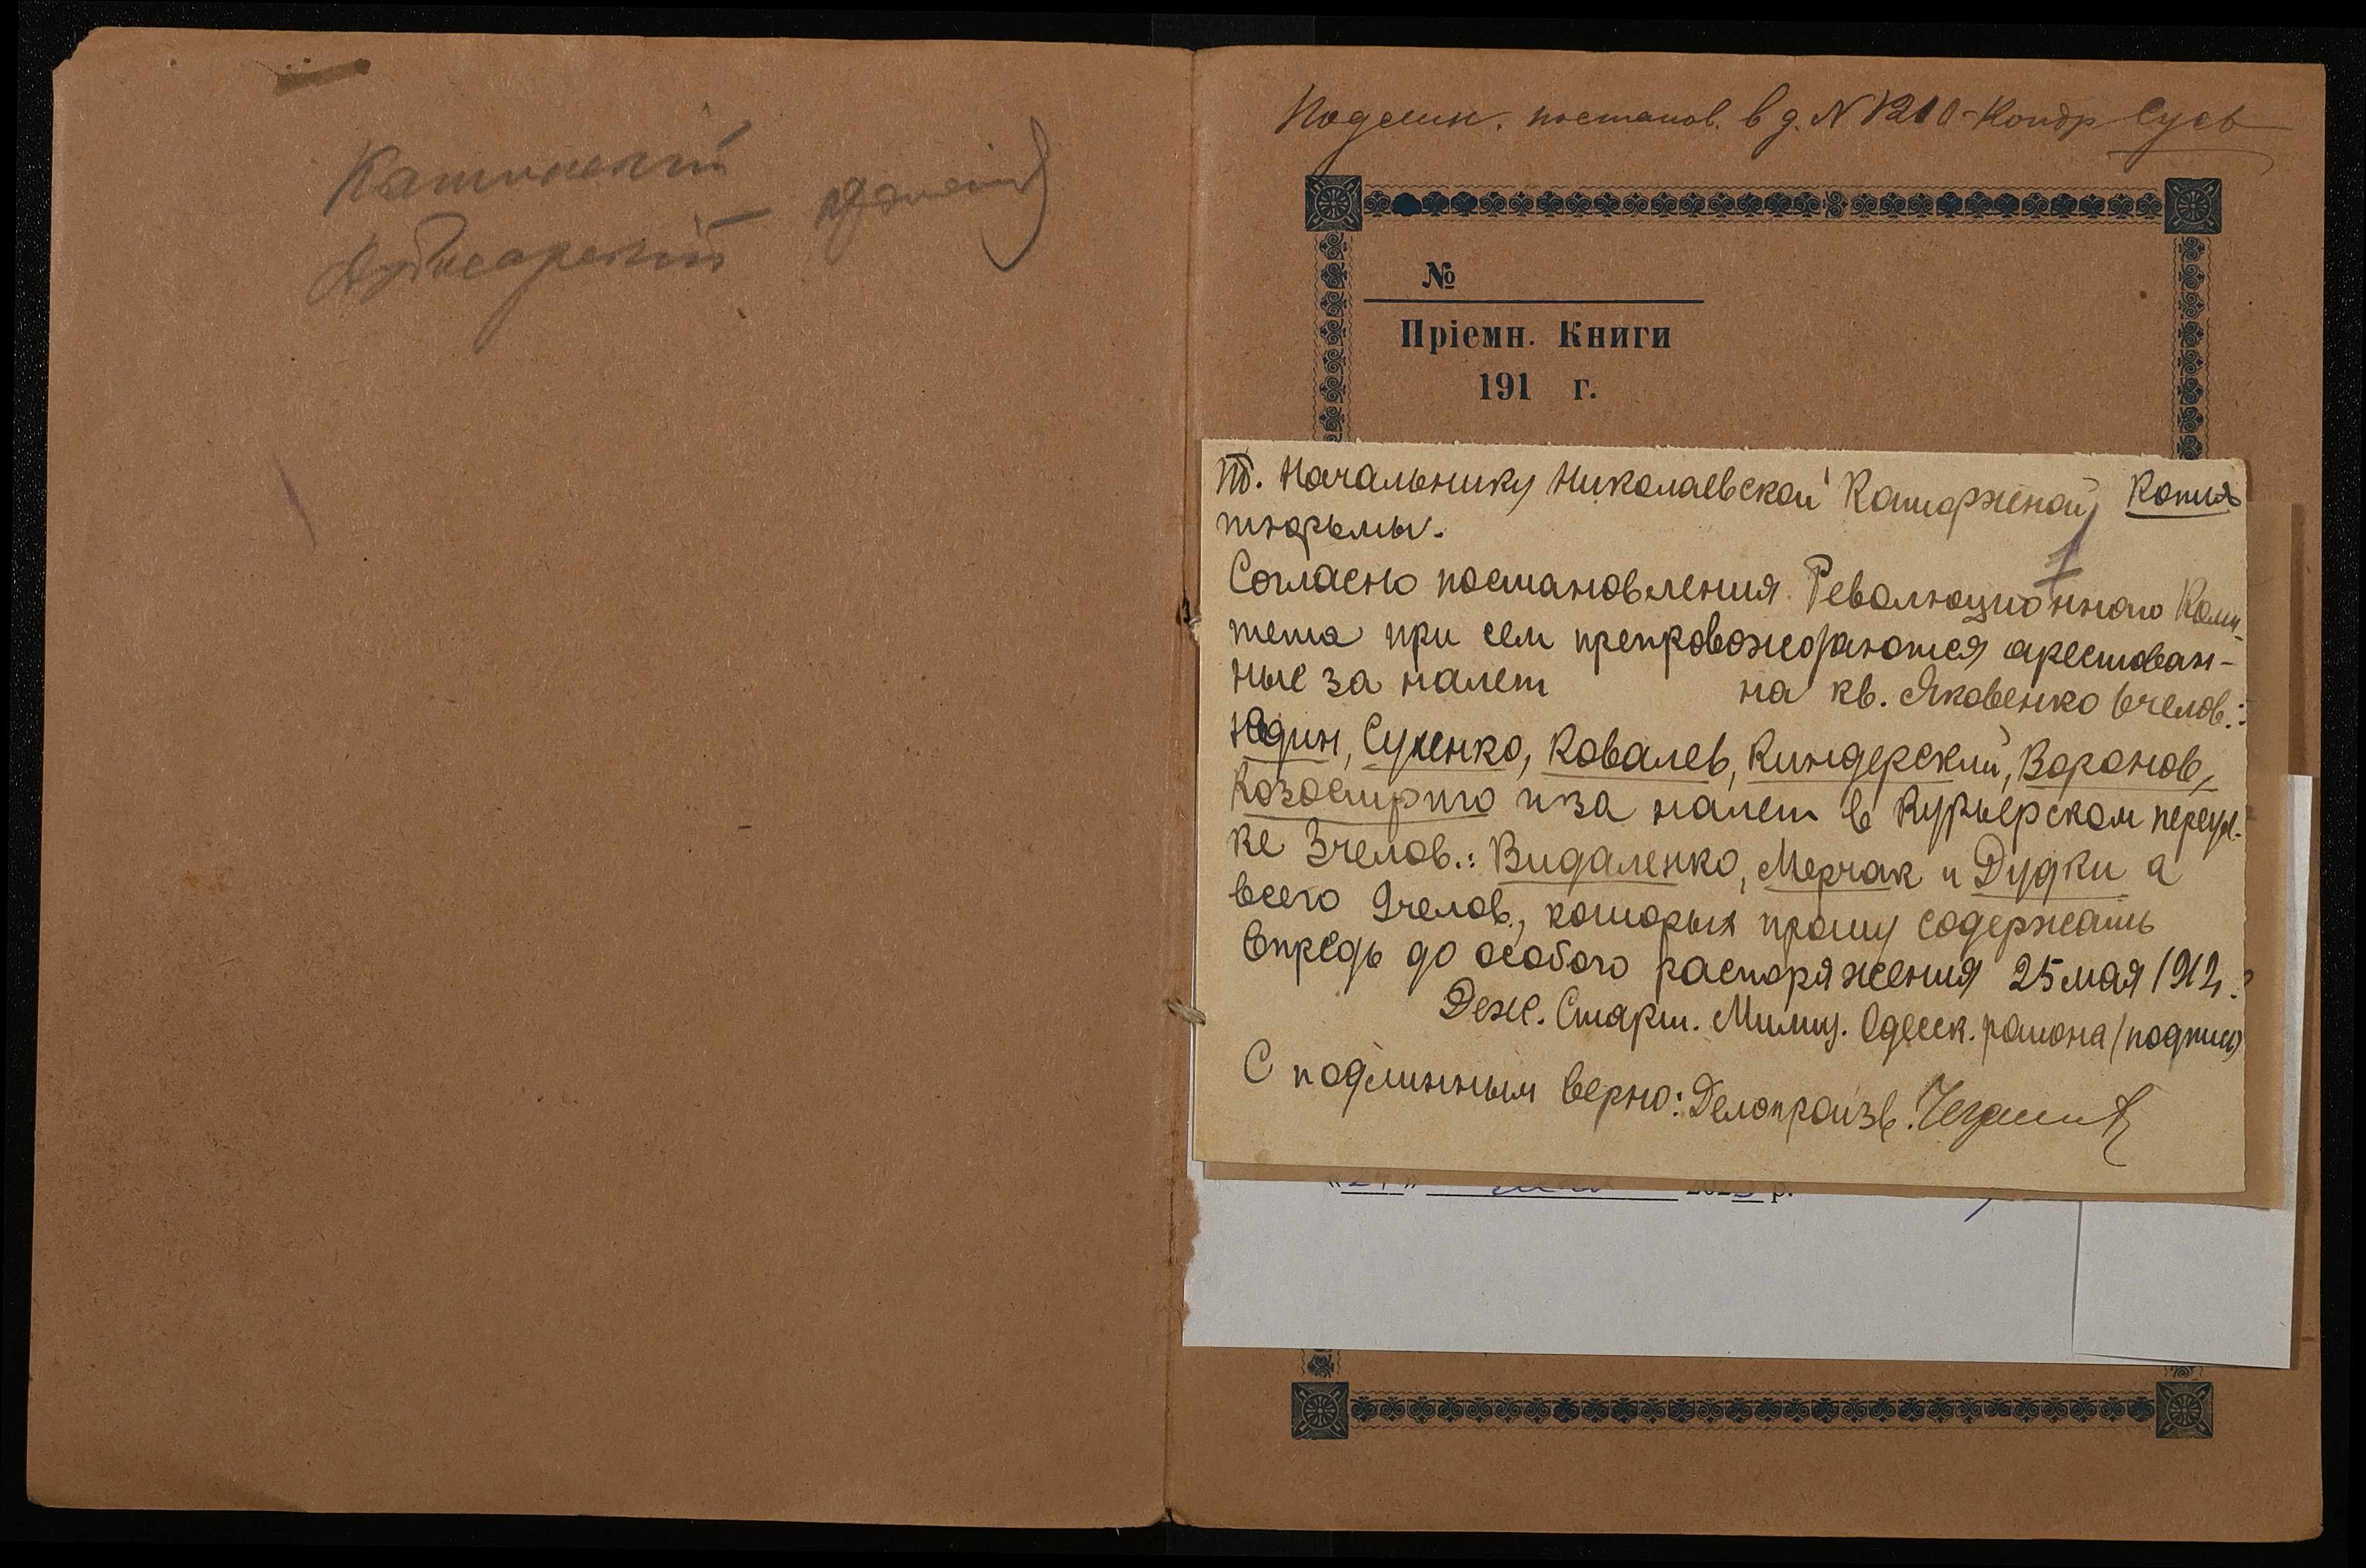 Подлин. постанов. в д. N 1210 - Кондр
№
Пріемн. Книги
191 г.
Т. Начальнику Николаевской Каторжной Копия
тюрьмы.
1
Согласно постановления Революционного Коми-
тета при сем препровождаются арестован-
ные за налет на кв. Яковенко 6 челов.:
Юдин, Сухенко, Ковалев, Киндерский, Воронов,
Козострыго и за налет в Курьерском переул-
ке 3 челов.: Видаленко, Мерчак и Дудки а
всего 9 челов., которых прошу содержать
впредь до особого распоряжения 25 мая 191
Деж. Старш. Милиц. Одесск. района /подпись/
С подлинным верно: Делопроизв.